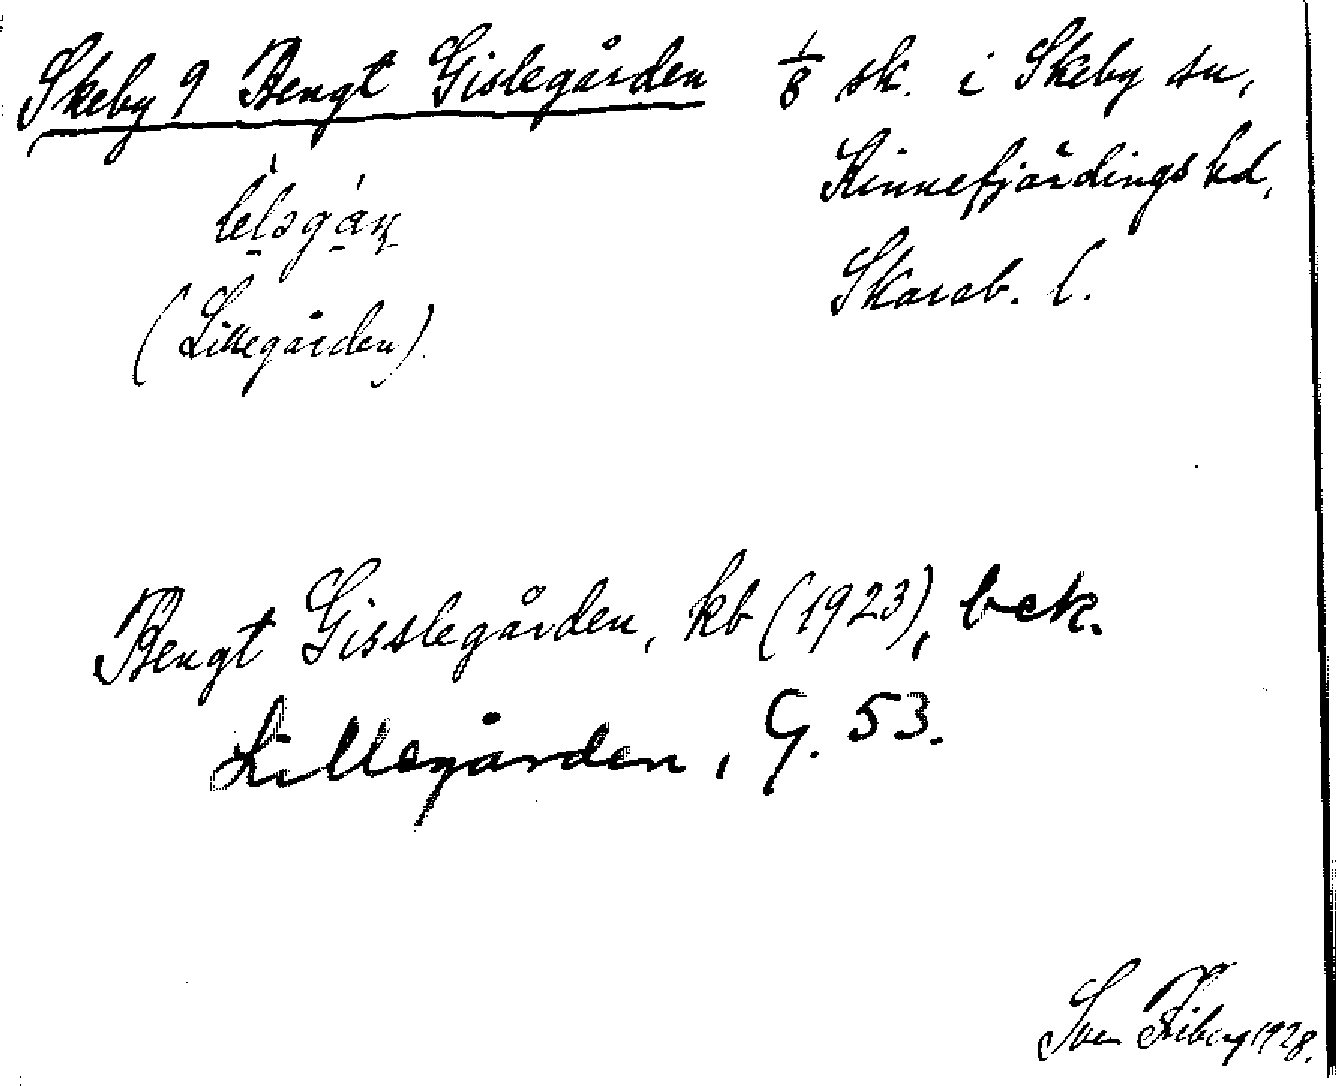 Skeby 9 Bengt Gislegården 1/8 sk. i Skeby sn,
Kinnefjärdings hd,
Skarab. l.
(Lillegården).
Bengt Gisslegården, kb (1923), bek.
Lillegården, G. 53.
Sven Friberg 1928.